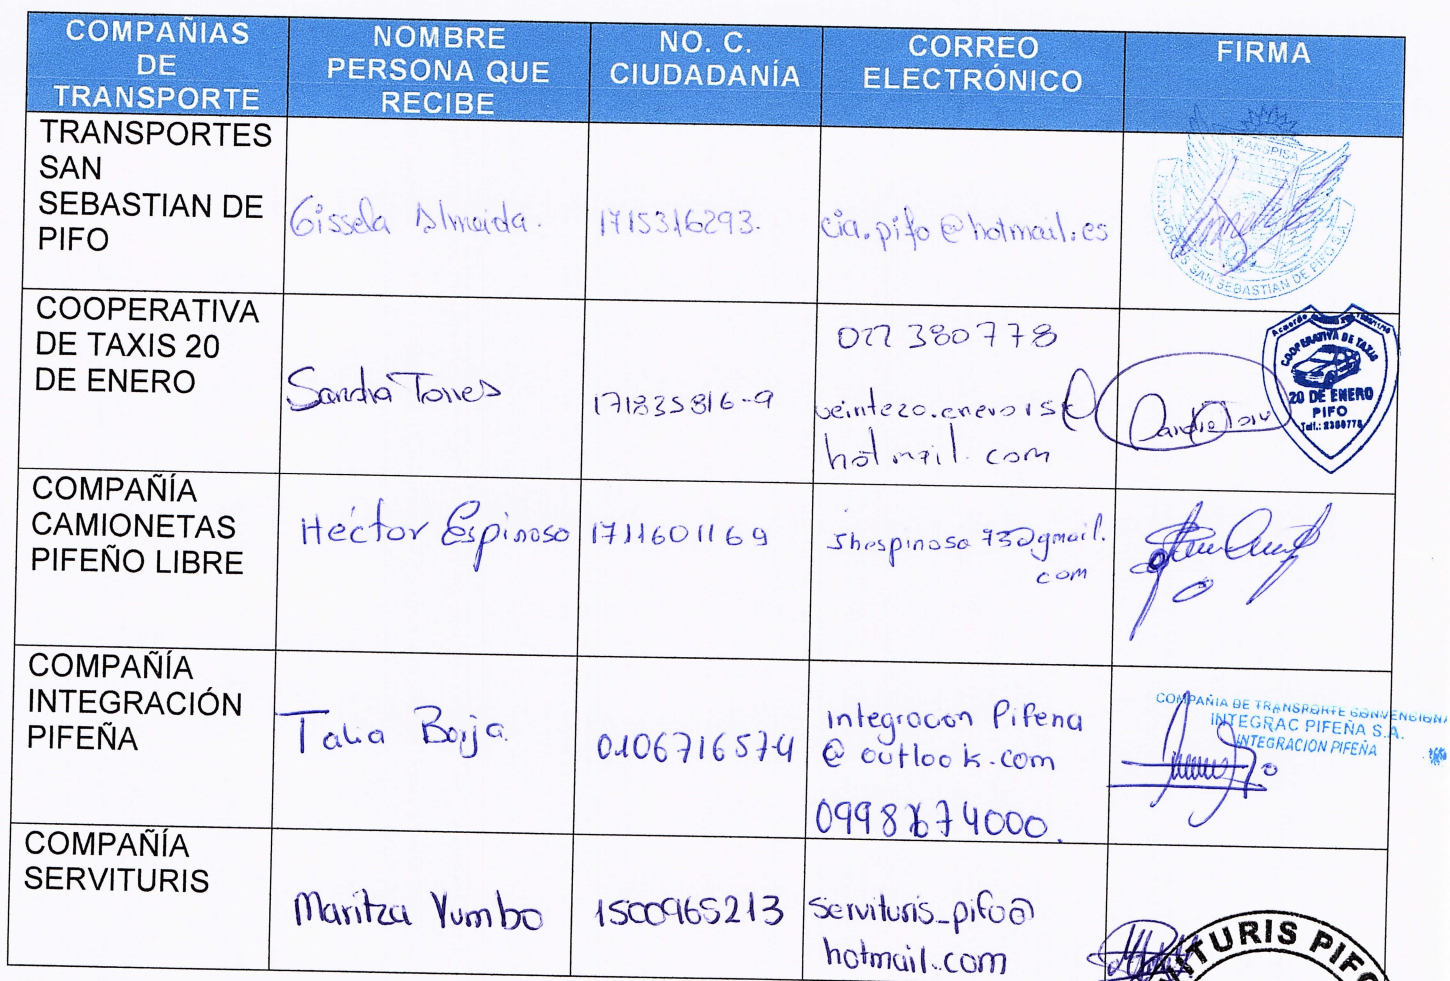 COMPAÑIAS
DE
TRANSPORTE
NOMBRE
PERSONA QUE
RECIBE
NO. C.
CIUDADANÍA
CORREO
ELECTRÓNICO
FIRMA
TRANSPORTES
SAN
SEBASTIAN DE
PIFO
Gissela Almeida.
1715316293.
cia.pifo@hotmail.es
TRANSPISA
SAN SEBASTIAN DE PIFO S.A.
COOPERATIVA
DE TAXIS 20
DE ENERO
Sandra Torres
171835816-9
022 380778
veinteco.enero15@
hotmail.com
COOPERATIVA DE TAXIS
20 DE ENERO
PIFO
Telf.: 2380778
COMPAÑÍA
CAMIONETAS
PIFEÑO LIBRE
Héctor Espinosa
1711601169
Jhespinosa73@gmail.
com
COMPAÑÍA
INTEGRACIÓN
PIFEÑA
Talia Borja.
0106716574
integracon Pifena
@outlook.com
099874000.
COMPAÑIA DE TRANSPORTE CONVENCIONA
INTEGRAC PIFEÑA S.A.
INTEGRACION PIFEÑA
COMPAÑÍA
SERVITURIS
Maritza Yumbo
1500965213
servituris_pifo@
hotmail.com
VITURIS PIFO